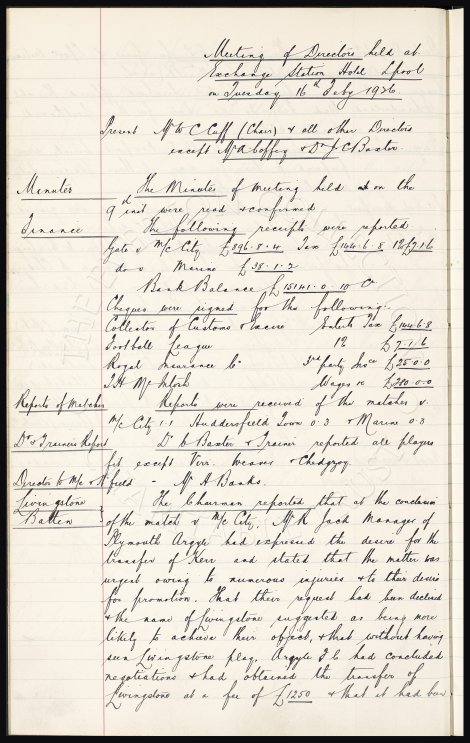 Meeting of Directors held at
Exchange Station Hotel Lpool
on Tuesday 16th Feby 1926
Present Mr W C Cuff (Chair) & all other Directors
except Mr A Coffey & Dr J C Baxter.
Minutes The Minutes of Meeting held on the
9th inst were read & confirmed
Finance The following receipts were reported
Gate v M/c City £896.8.4 Tax £144.6.8 12 £7.1.6
do v Marine £38.1.2
Bank Balance £15141.0.10 Cr
Cheques were signed for the following:
Collector of Customs & Excise Entets Tax £144.6.8
Football League 12 £7.1.6
Royal Insurance Co 3rd party Insce £25.0.0
Wages &c £280.0.0
Reports of Matches Reports were received of the matches v.
M/c City 1.1 Huddersfield Town 0.3 & Marine 0.3
Dr & Trainers Report Dr Baxter & Trainer reported all players
fit except Virr, Weaver & Chedgzoy
Director to M/c & H'field - Mr A Banks.
Livingstone The Chairman reported that at the conclusion
Batten of the match v M/c City, Mr R Jack Manager of
Plymouth Argyle had expressed the desire for the
transfer of Kerr and stated that the matter was
urgent owing to numerous injuries & to their desire
for promotion. That their request had been declined
& the name of Livingstone suggested as being more
likely to achieve their object, & that without having
seen Livingstone play, Argyle F C had concluded
negotiations & had obtained the transfer of
Livingstone at a fee of £1250 & that it had been